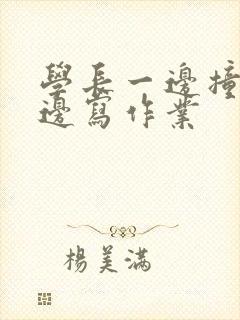 學長一邊撞
邊寫作業
楊美滿